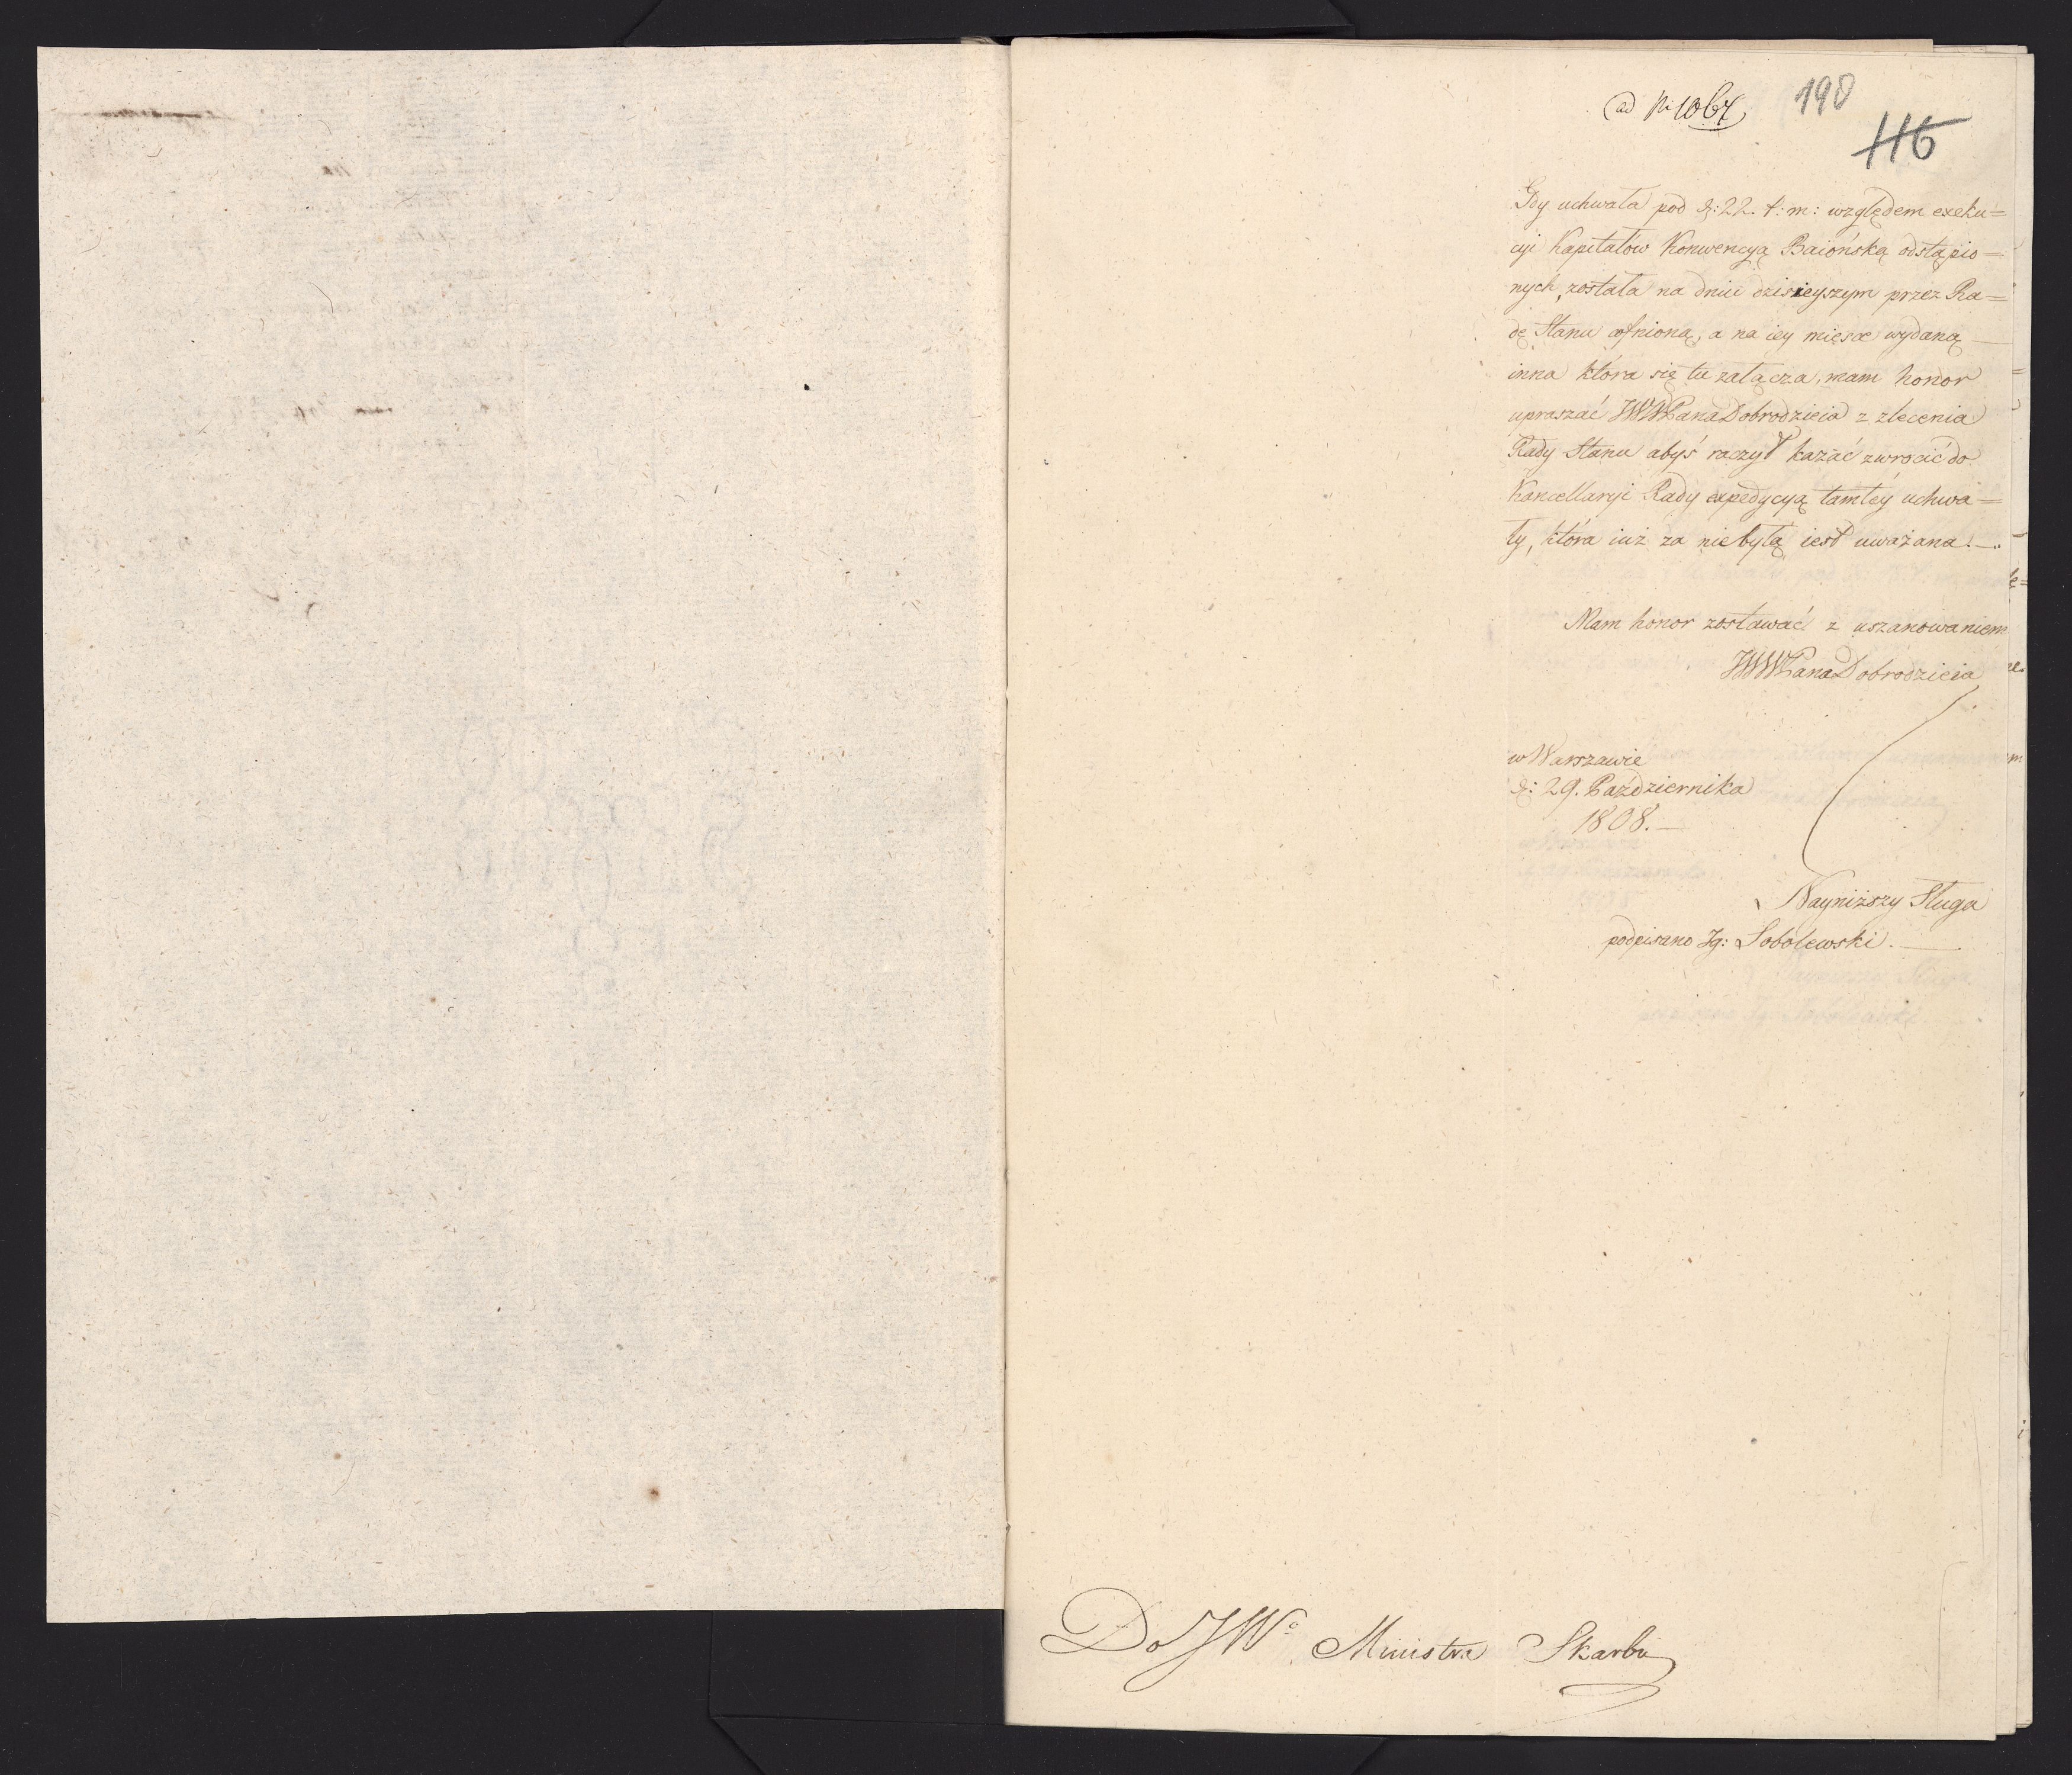 ad Nr 1067
190
116
Gdy uchwała pod d: 22. t: m: względem exeku=
cyi Kapitałów Konwencyą Baiońską odstąpio=
nych, została na dniu dzisieyszym przez Ra=
dę Stanu cofnioną, a na iey mieysce wydaną
inna która się tu załącza, mam honor
upraszać JWWPana Dobrodzieia z zlecenia
Rady Stanu abyś raczył kazać zwrocić do
Kancellaryi Rady expedycyą tamtey uchwa=
ły, która iuż za niebyłą iest uważana.—
Mam honor zostawać z uszanowaniem
JWWPana Dobrodzieia
w Warszawie
d: 29. Października
1808.—
Nayniższy Sługa
podpisano Ig: Sobolewski.—
Do JWo Ministra Skarbu